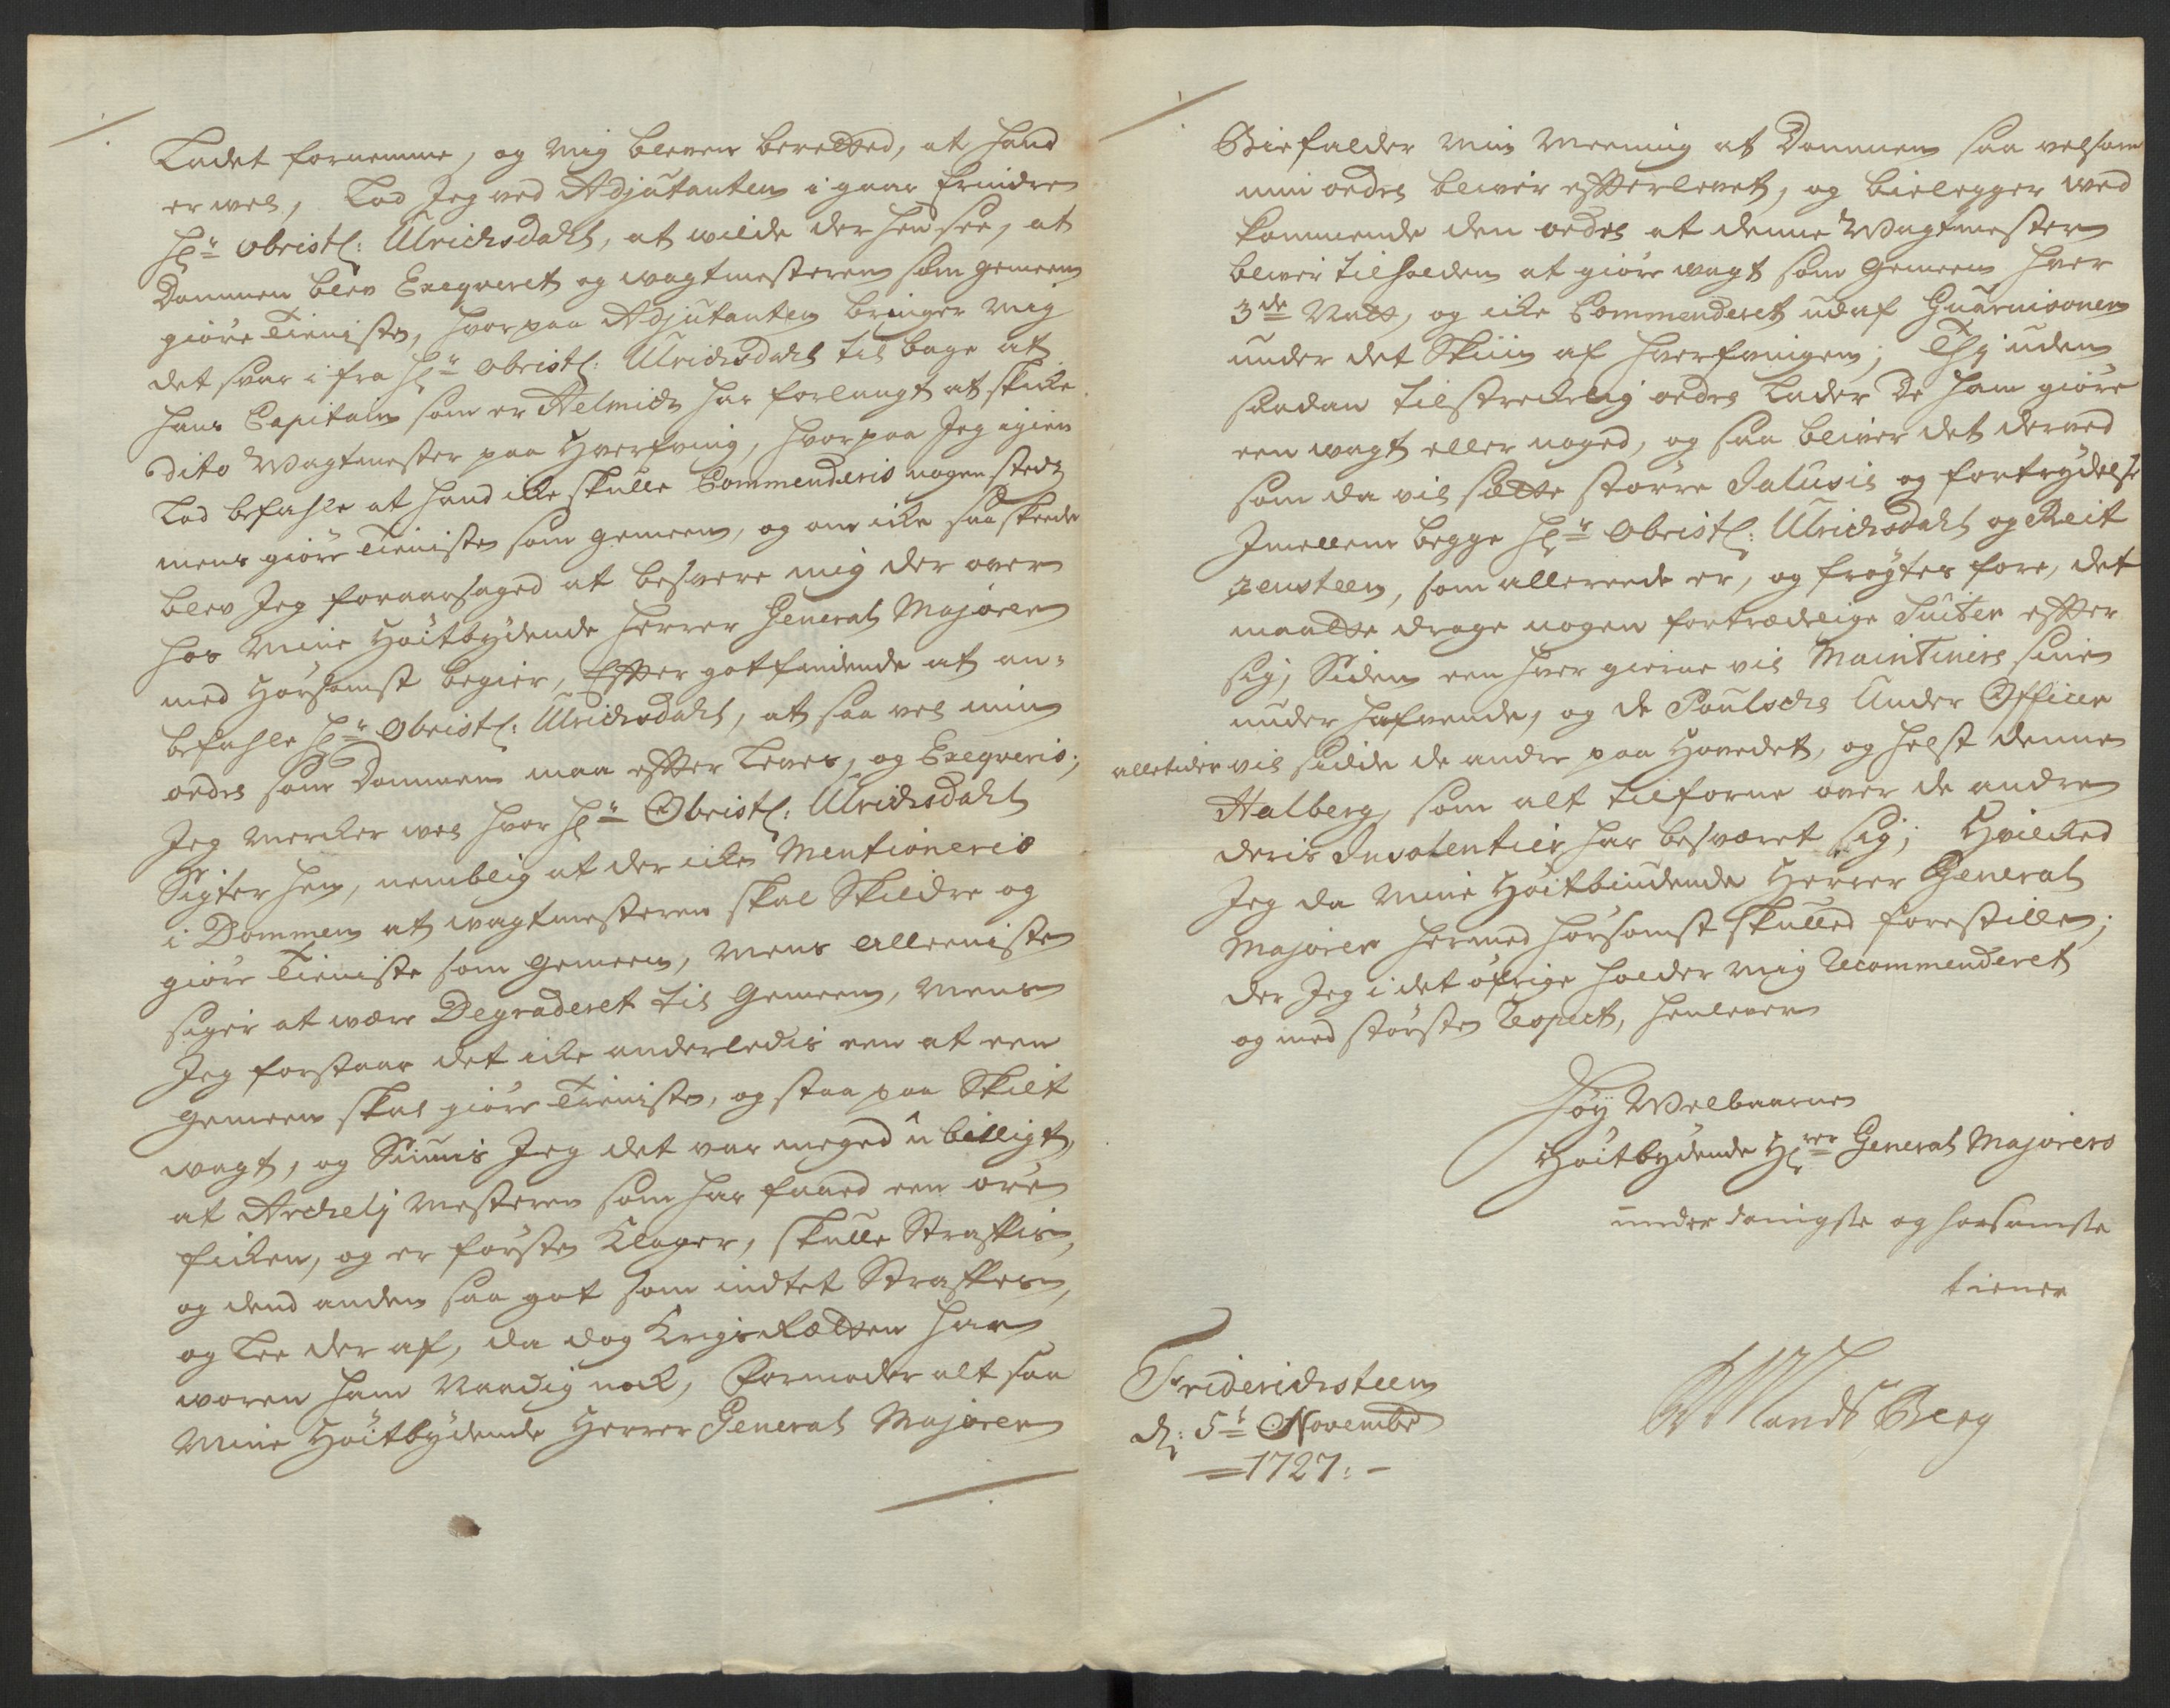 Ladet fornemme, og mig bleven beretted, at hand
er vel, Lod Jeg ved Adjutanten i gaar erindre
Hr Obristl: Ulrichsdahl, at wilde der hen see, at
Dommen blev Exeqveret og wagtmesteren som gemeen
giøre Tieniste, hvorpaa Adjutanten bringer mig
det svar i fra Hr Obristl: Ulrichsdahl til bage at
hans Capitain som er Helmich har forlangt at skicke
dito Wagtmester paa Hverfving, hvorpaa Jeg igien
Lod befahle at hand icke skulle Commenderis nogen steds
mens giøre Tieniste som gemeen, og om icke saa skeede
blev Jeg foraarsaged at besvere mig der over
hos Mine Høitbydende Herrer General Majorer
med Hørsomst begier, Efter gotfindende at an-
befahle Hr Obristl: Ulrichsdahl, at saa vel min
ordre som Dommen maa efter Leves, og Exeqveris;
Jeg mercker vel hvor Hr Obristl: Ulrichsdahl
Sigter hen, nemblig at der icke Mentioneris
i Dommen at wagtmesteren skal Skildre og
giøre Tieniste som Gemeen, mens alleeniste
siger at være Degraderet til Gemeen, mens
Jeg forstaar det icke anderledis een at een
gemeen skal giøre Tieniste, og staa paa Skilt
wagt, og Siunis Jeg det var meged u billigt,
at Archelj mesteren som har faaed een øre
ficken, og er første Klager, skulle Straffis,
og dend anden saa got som indtet Straffes,
og Lee der af, da dog Krigs Rætten har
woren ham Naadig nock, Formoder alt saa
Mine Høitbydende Herrer General Majorer
Biefalder min meening at Dommen saa velsom
min ordre bliver efterlevet, og bielegger ved
kommende den ordre at denne Wagtmester
bliver tilholden at giøre wagt som Gemeen hver
3de Natt, og icke Commenderet udaf Guarnisonen
under det Skiin af Hverfvingen; Thj uden
saadan tilstreckelig ordre Lader De ham giøre
een wagt eller noged, og saa bliver det derved
som da vil sætte større Jalusie og fortrydelse
Imellem begge Hr Obristl: Ulrichsdahl og Reit
zensteen, som allereede er, og frøgtes fore, det
maatte drage nogen fortrædelige Suiter efter
sig, Siden een hver gierne vil Maintinere sine
under hafvende, og de Poulsche Under Officer
alletider vil sidde de andre paa Hovedet, og helst denne
Halberg, som alt tilforne over de andre
deris Insolentier har besværet sig; Hvilcked
Jeg da mine Høitbiudende Herrer General
Majorer hermed hørsomst skulled forestille;
der Jeg i det øfrige holder mig Recommenderet
og med største Respect, henlever
Høy Welbaarne
Høitbydende Hrer General Majorers
underdanigste og hørsamste
tiener
Frideridsteen
d: 5t November
1727: -
Landsberg